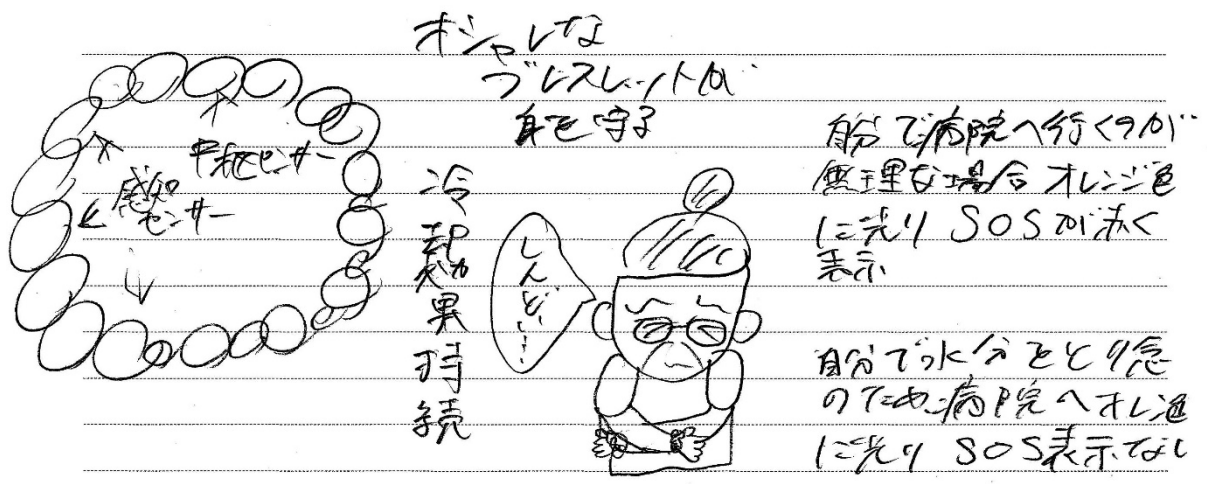 オシャレな
ブレスレットが
身を守る
中枢センサー
感知
センサー
冷却効果持続
しんどい…
自分で病院へ行くのが
無理な場合オレンジ色
に光りSOSが赤く
表示
自分で水分をとり念
のため病院へオレ色
に光りSOS表示なし